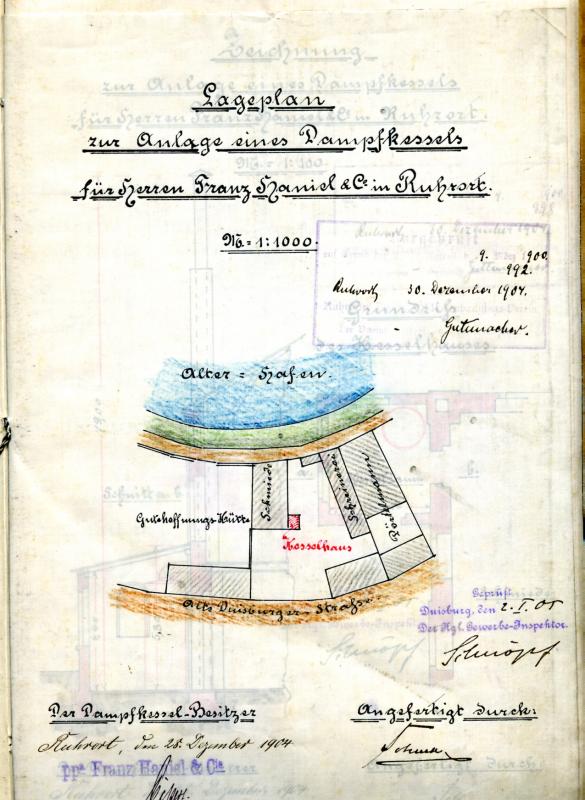 Lageplan
zur Anlage eines Dampfkessels
für Herren Franz Haniel & Cie in Ruhrort.
M. = 1:1000.
9. 1900.
992.
Ruhrort, 30. Dezember 1904.
Gutmacher.
Alter = Hafen.
Schmiede
Schreinerei
Gutehoffnungs-Hütte
Kesselhaus
Alte Duisburger-Straße.
Geprüft
Duisburg, den 2. I. 05
Der Kgl. Gewerbe-Inspektor.
Der Dampfkessel-Besitzer
Angefertigt durch:
Ruhrort, den 28. Dezember 1904
ppa Franz Haniel & Cie